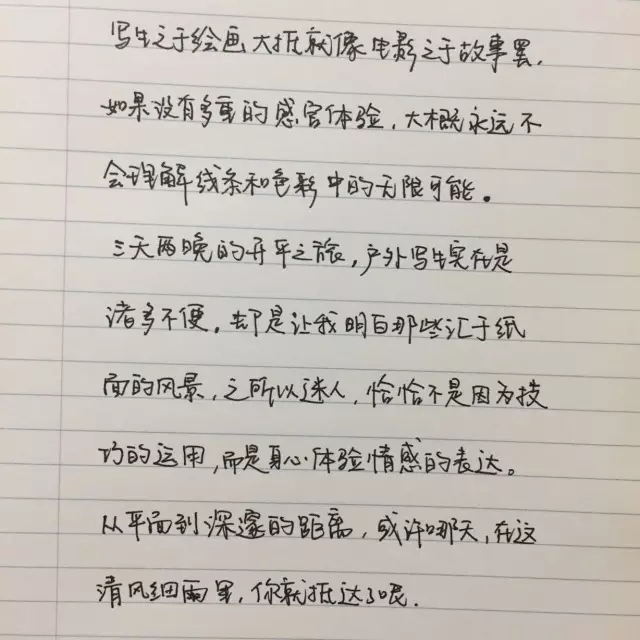 写生之于绘画大抵就像电影之于故事罢.
如果没有多重的感官体验，大概永远不
会理解线条和色彩中的无限可能。
三天两晚的开平之旅，户外写生实在是
诸多不便，却是让我明白那些汇于纸
面的风景，之所以迷人，恰恰不是因为技
巧的运用，而是身心体验情感的表达。
从平面到深邃的距离，或许哪天，在这
清风细雨里，你就抵达了呢.